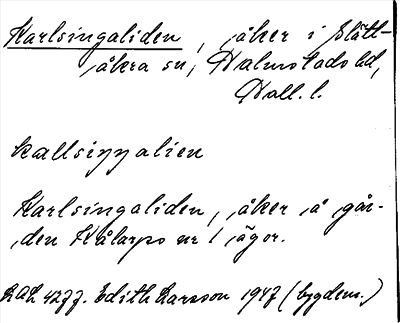 Karlsingaliden, åker i Slätt-
åkra sn, Halmstads hd,
Hall. l.
kallsiŋŋalien
Karlsingaliden, åker å går-
den Kålarps nr 1 ägor.
Edith Larsson 1947 (bygdem.)